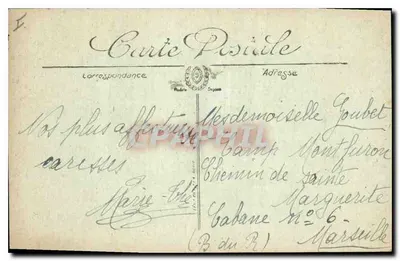 Carte Postale
Correspondance
Adresse
Nos plus affectueuses
caresses
Marie-
Mesdemoiselle Goubet
Camp Montfuron
Chemin de Sainte
Marguerite
Cabane n° 6
Marseille
(B du R)